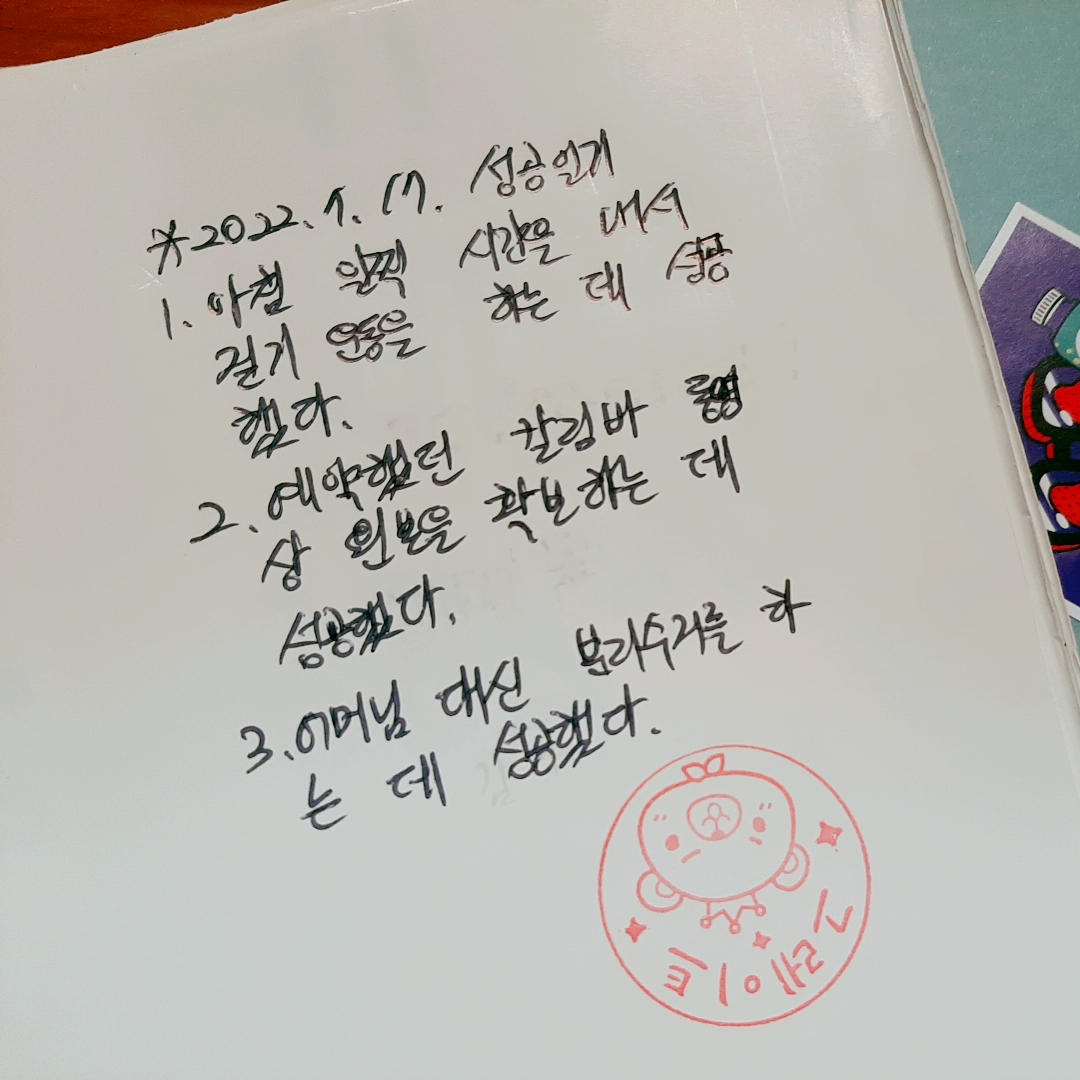 ※2022.1.17. 성공일기
1. 아침 일찍 시간을 내서
걷기 운동을 하는 데 성공
했다.
2. 예약했던 칼림바 동영
상 원본을 확보하는 데
성공했다.
3. 어머님 대신 분리수거를 하
는 데 성공했다.